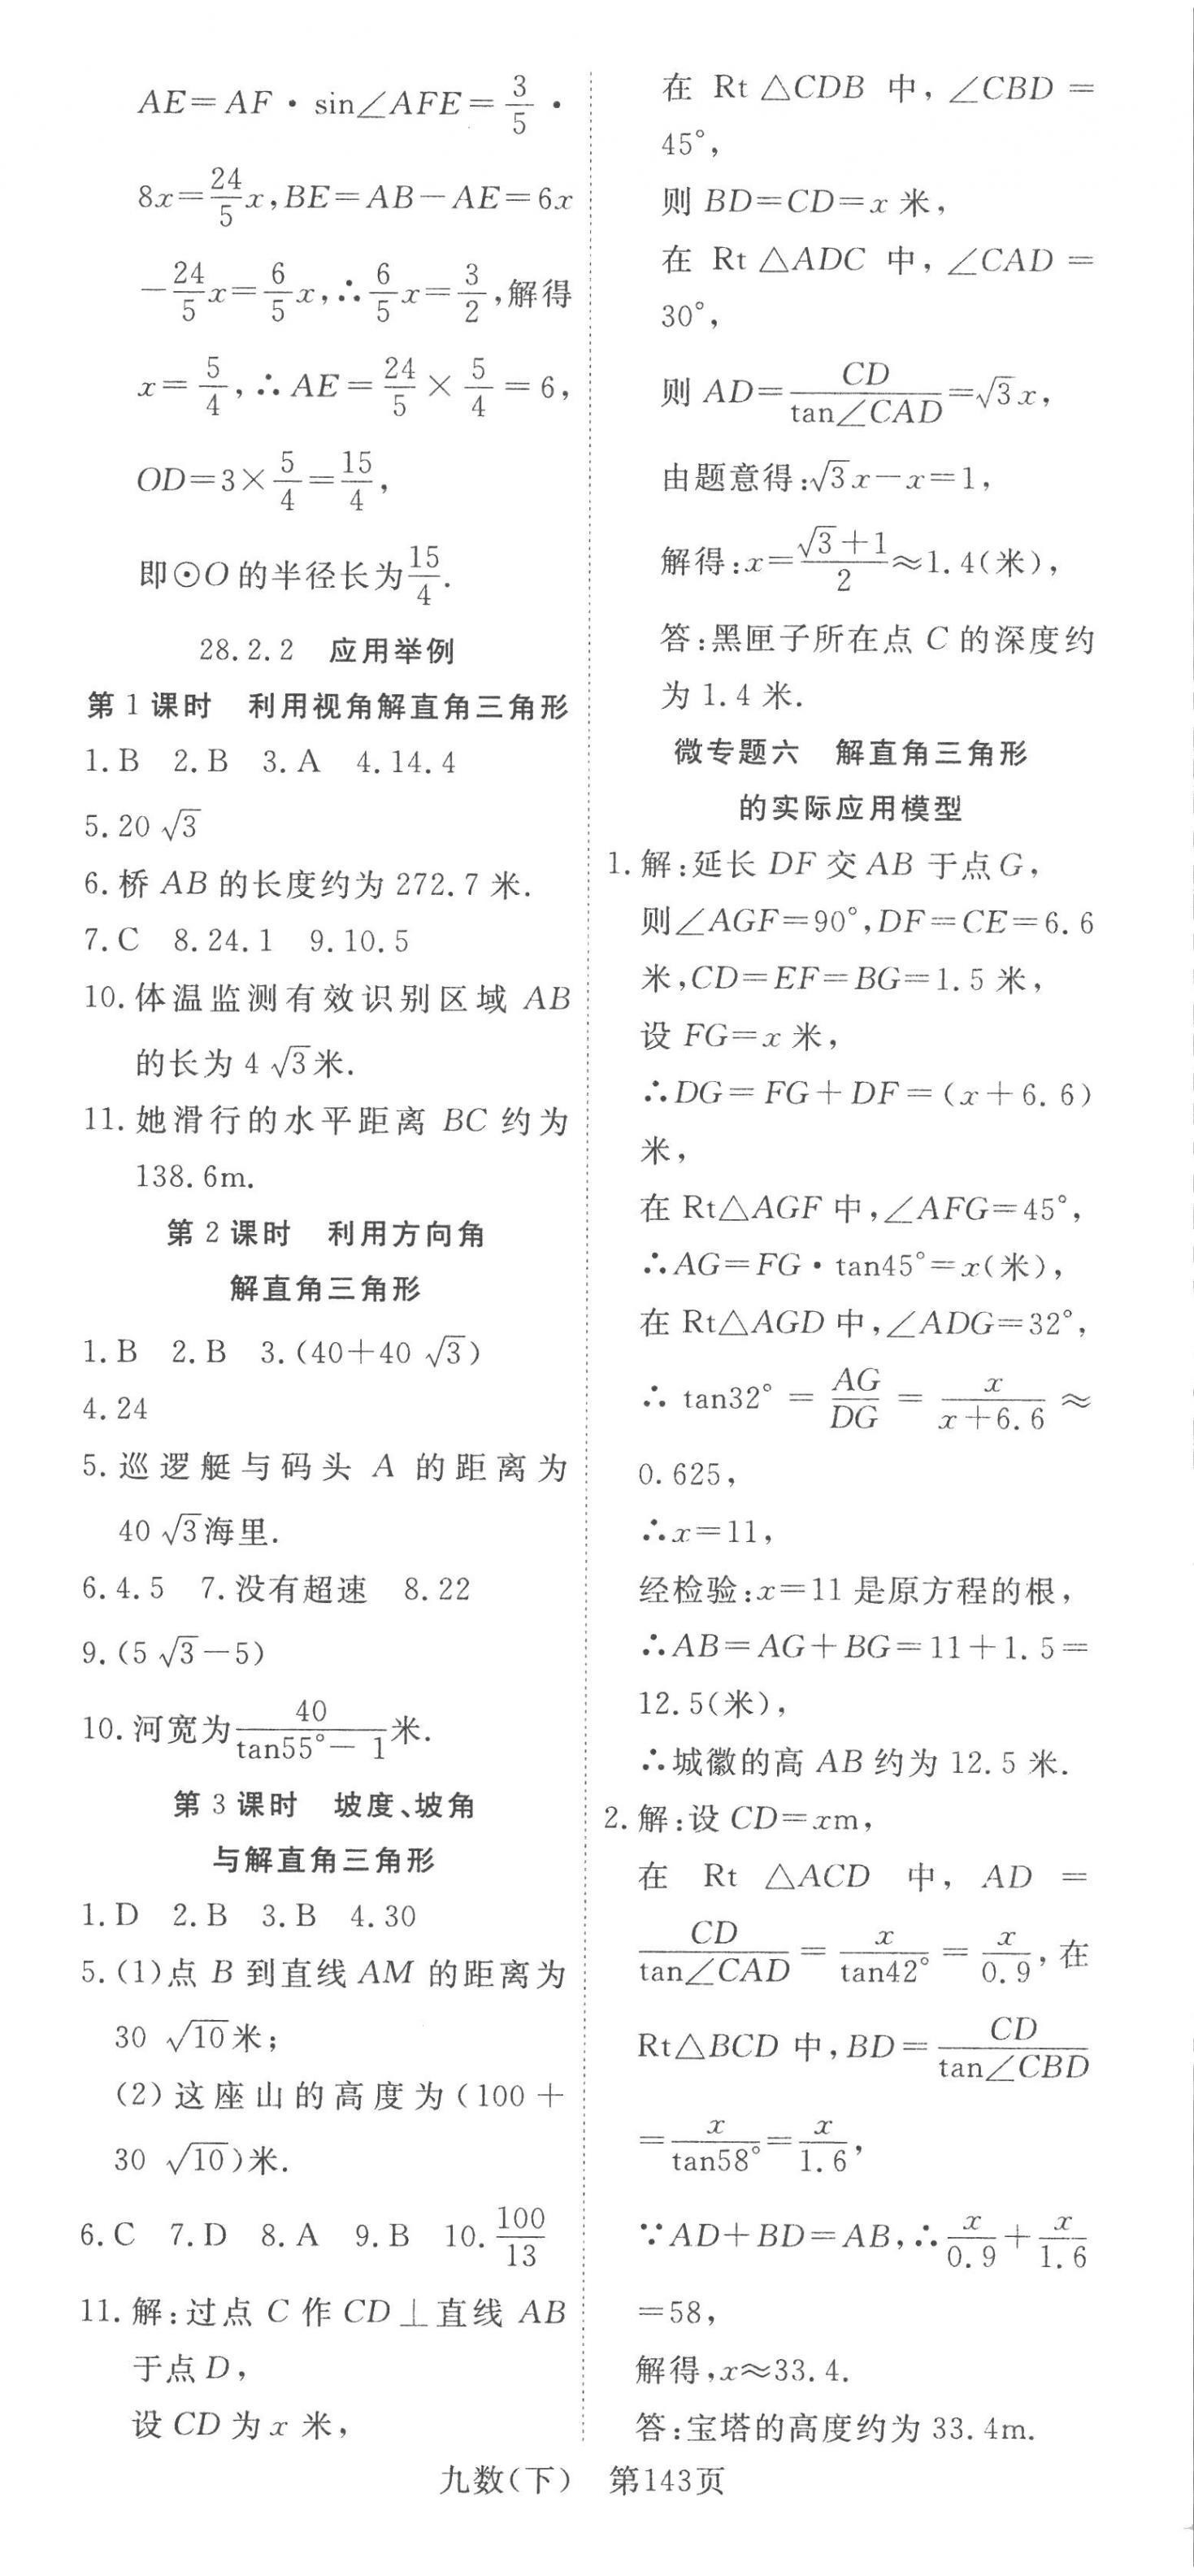 AE=AF·sin∠AFE=3/5·
8x=24/5x,BE=AB-AE=6x
-24/5x=6/5x,∴6/5x=3/2,解得
x=5/4,∴AE=24/5×5/4=6,
OD=3×5/4=15/4,
即⊙O的半径长为15/4.
28.2.2 应用举例
第1课时 利用视角解直角三角形
1.B 2.B 3.A 4.14.4
5.20√3
6.桥AB的长度约为272.7米.
7.C 8.24.1 9.10.5
10.体温监测有效识别区域AB
的长为4√3米.
11.她滑行的水平距离BC约为
138.6m.
第2课时 利用方向角
解直角三角形
1.B 2.B 3.(40+40√3)
4.24
5.巡逻艇与码头A的距离为
40√3海里.
6.4.5 7.没有超速 8.22
9.(5√3-5)
10.河宽为40/(tan55°-1)米.
第3课时 坡度、坡角
与解直角三角形
1.D 2.B 3.B 4.30
5.(1)点B到直线AM的距离为
30√10米;
(2)这座山的高度为(100+
30√10)米.
6.C 7.D 8.A 9.B 10.100/13
11.解:过点C作CD⊥直线AB
于点D,
设CD为x米,
在Rt△CDB中,∠CBD=
45°,
则BD=CD=x米,
在Rt△ADC中,∠CAD=
30°,
则AD=CD/tan∠CAD=√3x,
由题意得:√3x-x=1,
解得:x=(√3+1)/2≈1.4(米),
答:黑匣子所在点C的深度约
为1.4米.
微专题六 解直角三角形
的实际应用模型
1.解:延长DF交AB于点G,
则∠AGF=90°,DF=CE=6.6
米,CD=EF=BG=1.5米,
设FG=x米,
∴DG=FG+DF=(x+6.6)
米,
在Rt△AGF中,∠AFG=45°,
∴AG=FG·tan45°=x(米),
在Rt△AGD中,∠ADG=32°,
∴tan32°=AG/DG=x/(x+6.6)≈
0.625,
∴x=11,
经检验:x=11是原方程的根,
∴AB=AG+BG=11+1.5=
12.5(米),
∴城徽的高AB约为12.5米.
2.解:设CD=xm,
在Rt△ACD中,AD=
CD/tan∠CAD=x/tan42°=x/0.9,在
Rt△BCD中,BD=CD/tan∠CBD
=x/tan58°=x/1.6,
∵AD+BD=AB,∴x/0.9+x/1.6
=58,
解得,x≈33.4.
答:宝塔的高度约为33.4m.
九数(下) 第143页